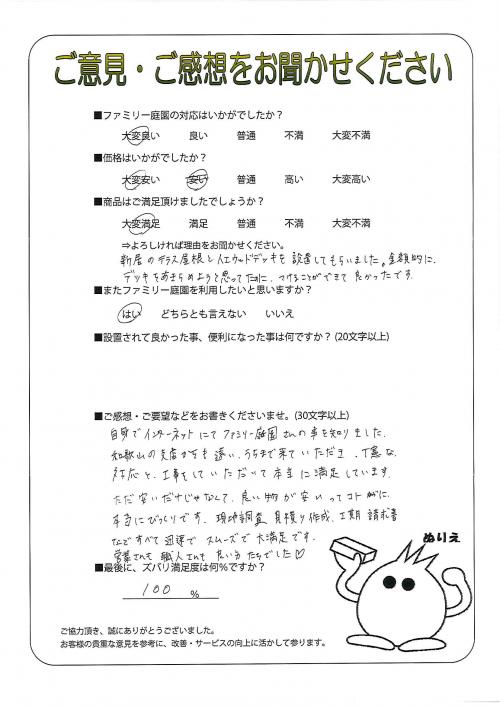 ご意見・ご感想をお聞かせください
■ファミリー庭園の対応はいかがでしたか？
大変良い 良い 普通 不満 大変不満
■価格はいかがでしたか？
大変安い 安い 普通 高い 大変高い
■商品はご満足頂けましたでしょうか？
大変満足 満足 普通 不満 大変不満
⇒よろしければ理由をお聞かせください。
新居のテラス屋根と人工ウッドデッキを設置してもらいました。金額的に、
デッキをあきらめようと思ってたのに、つけることができて良かったです。
■またファミリー庭園を利用したいと思いますか？
はい どちらとも言えない いいえ
■設置されて良かった事、便利になった事は何ですか？(20文字以上)
■ご感想・ご要望などをお書きくださいませ。(30文字以上)
自身でインターネットにてファミリー庭園さんの事を知りました。
和歌山の支店からも遠い、うちまで来ていただき、丁寧な
対応と、工事をしていただいて本当に満足しています。
ただ安いだけじゃなくて、良い物が安いってコトに
本当にびっくりです。現地調査、見積り作成、工期、請求書
などすべて迅速でスムーズで大満足です。
営業さんも職人さんも良い方たちでした♡
■最後に、ズバリ満足度は何％ですか？
100 ％
ぬりえ
ご協力頂き、誠にありがとうございました。
お客様の貴重な意見を参考に、改善・サービスの向上に活かして参ります。